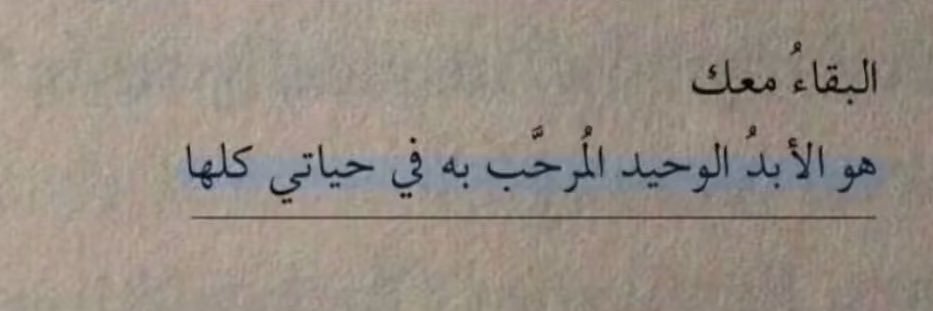 البقاءُ معك
هو الأبدُ الوحيد المُرحَّب به في حياتي كلها